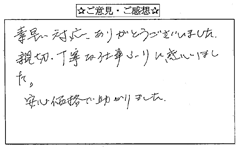 ☆ご意見・ご感想☆
素早い対応、ありがとうございました。
親切・丁寧な仕事ぶりに感心しまし
た。
安い価格で助かりました。